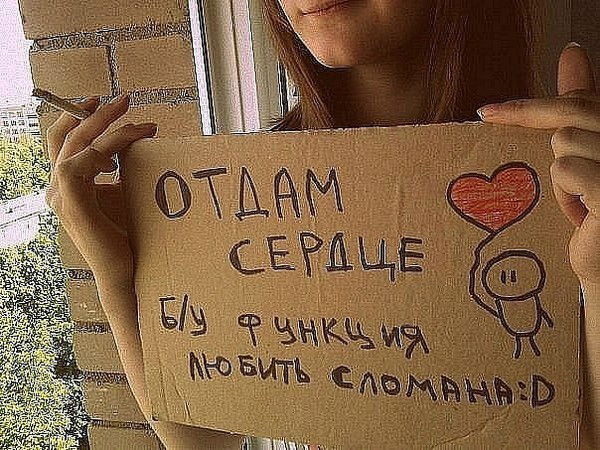 ОТДАМ
СЕРДЦЕ
Б/у ФУНКЦИЯ
ЛЮБИТЬ СЛОМАНА:D